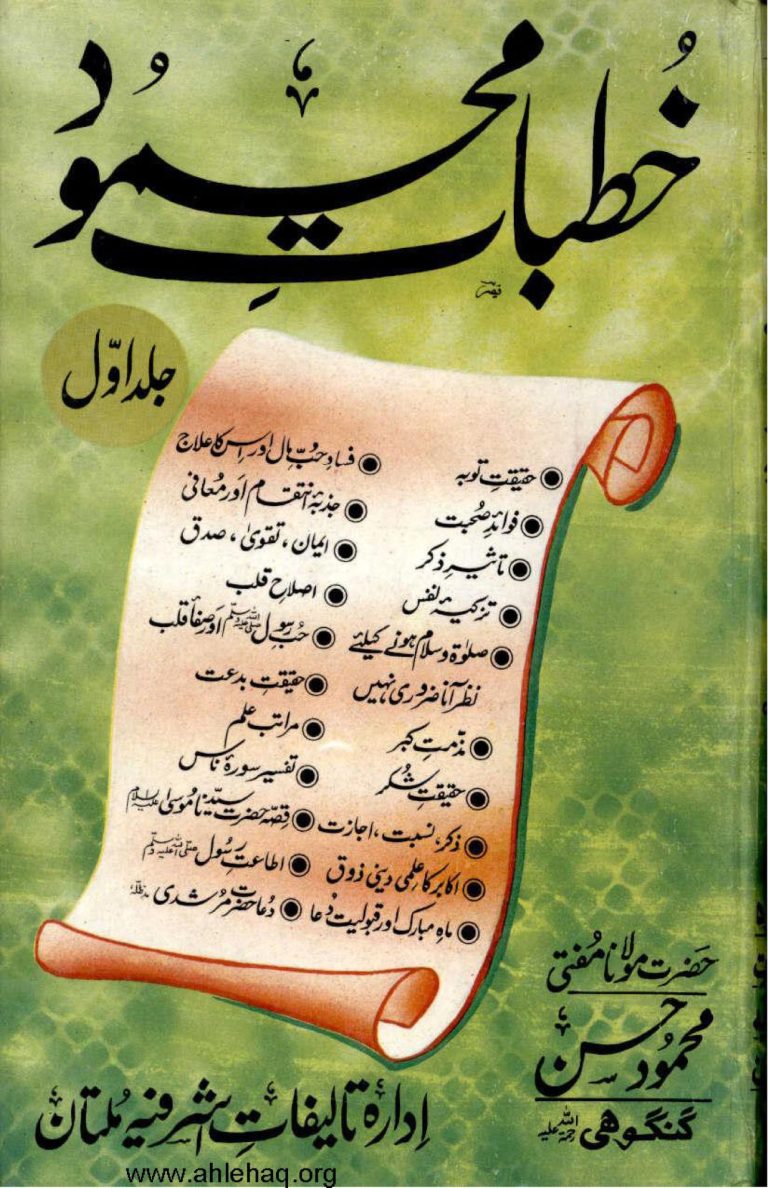 خطباتِ محمود
جلد اوّل
حقیقتِ توبہ
فوائدِ صحبت
تاثیرِ ذکر
تزکیۂ نفس
صلوٰۃ و سلام ہونے کیلئے
نظر آنا ضروری نہیں
مذمتِ کبر
حقیقتِ شکر
ذکر، نسبت، اجازت
اکابر کا علمی دینی ذوق
ماہِ مبارک اور قبولیت دُعا
فسادِ حُبِّ مال اور اس کا علاج
جذبۂ انتقام اور معافی
ایمان، تقویٰ، صدق
اصلاحِ قلب
حُبِّ رسول صلی اللہ علیہ وسلم اور صفأ قلب
حقیقتِ بدعت
مراتب علم
تفسیر سورۂ ناس
قصّہ حضرت سیّدنا موسیٰ علیہ السلام
اطاعتِ رسول صلی اللہ علیہ وسلم
دُعا حضرت مرشدی مدظلہ
حضرت مولانا مفتی
محمود حسن
گنگوهی رحمۃ اللہ علیہ
ادارہ تالیفاتِ اشرفیہ مُلتان
www.ahlehaq.org